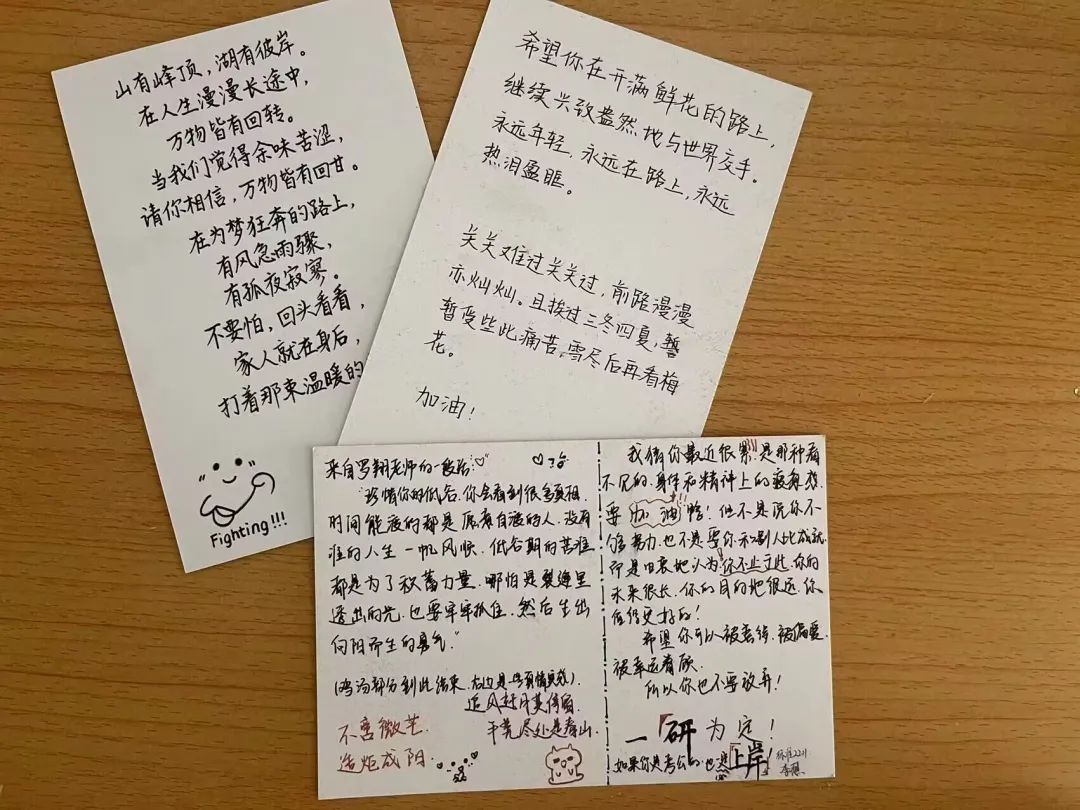 山有峰顶，湖有彼岸。
在人生漫漫长途中，
万物皆有回转。
当我们觉得余味苦涩，
请你相信，万物皆有回甘。
在为梦狂奔的路上，
有风急雨骤，
有孤夜寂寥。
不要怕，回头看看，
家人就在身后，
打着那束温暖的
Fighting!!!
希望你在开满鲜花的路上，
继续兴致盎然地与世界交手。
永远年轻，永远在路上，永远
热泪盈眶。
关关难过关关过，前路漫漫
亦灿灿。且挨过三冬四夏，暂
暂受些此痛苦，雪尽后再看梅
花。
加油！
来自罗翔老师的一段话：
“珍惜你的低谷，你会看到很多真相，
时间能渡的都是愿意自渡的人，没有
谁的人生一帆风顺．低谷期的苦难
都是为了积蓄力量．哪怕是裂缝里
透出的光，也要牢牢抓住，然后生出
向阳而生的勇气”
(鸡汤部分到此结束．右边是真情实感)
追风赶月莫停留
平芜尽处是春山．
不啻微芒
造炬成阳．
我猜你最近很累!!!是那种看
不见的．身体和精神上的疲惫感．
要加油哈！但不是说你不
够努力．也不是要你和别人比成就．
而是由衷地认为：你不止于此，你的
未来很长．你的目的地很远．你
值得更好的！
希望你可以被爱．被偏爱．
被幸运眷顾．
所以你也不要放弃！
一「研」为定！
如果你是考公的．也是「上岸」！